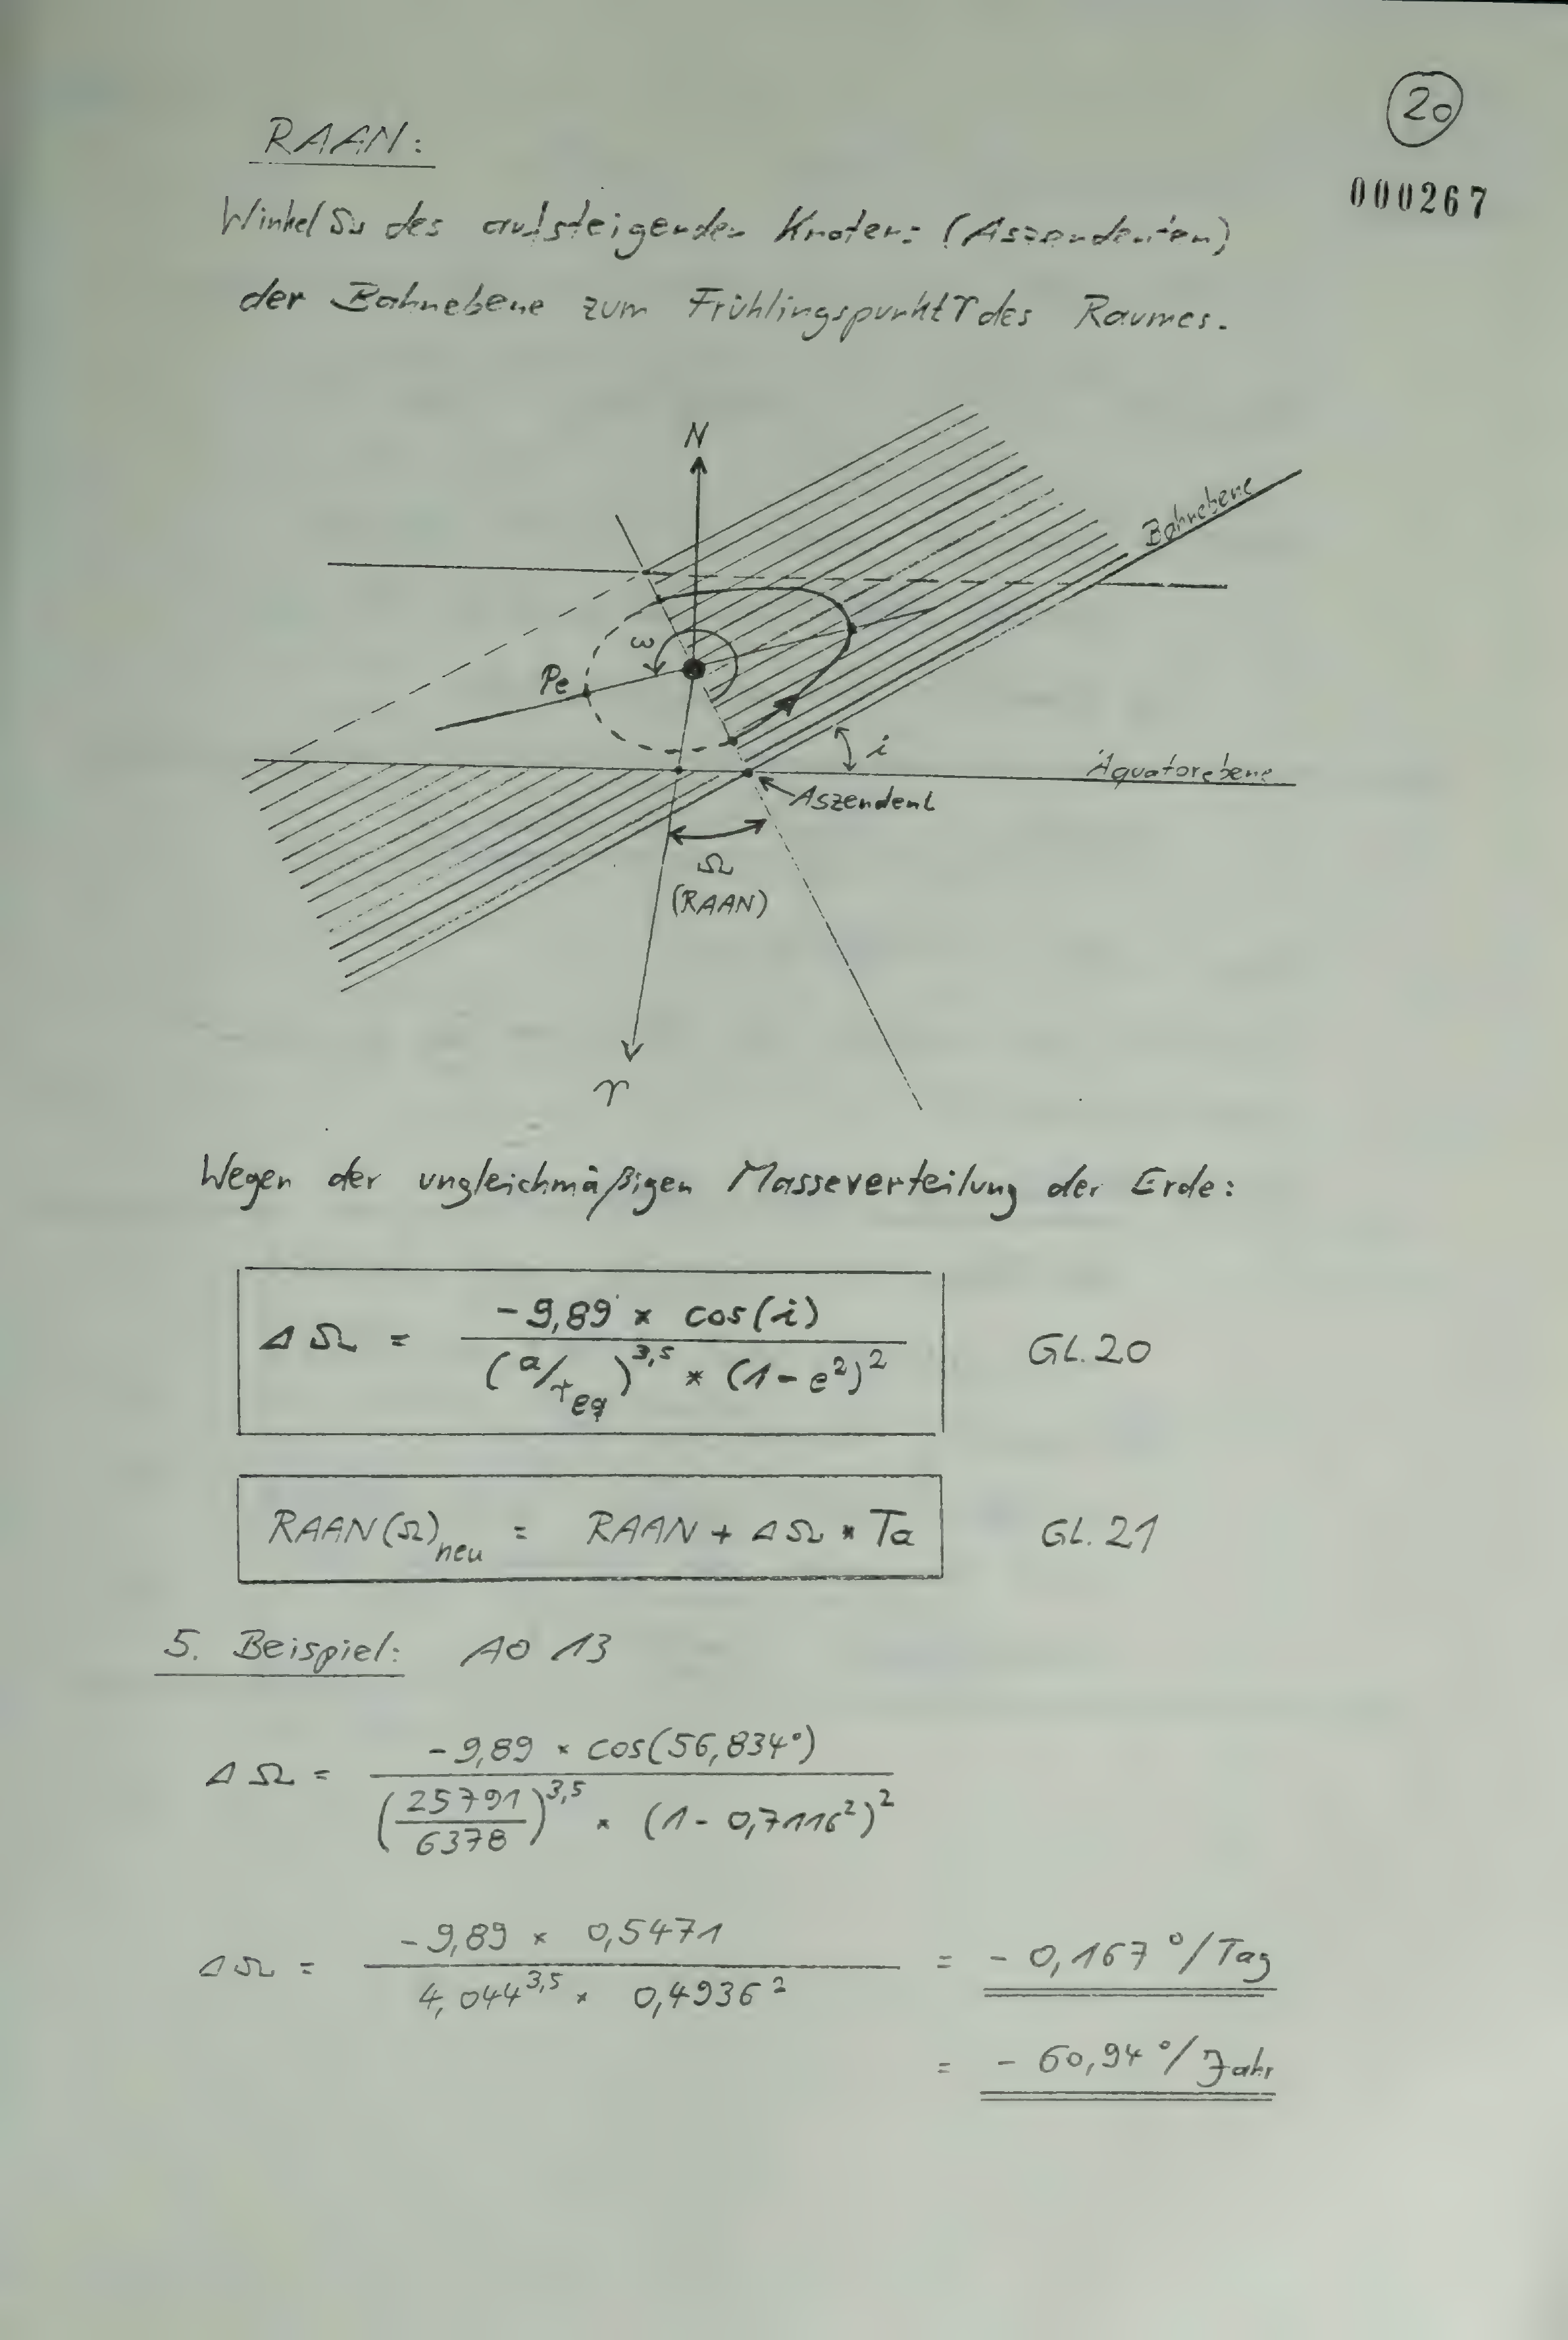 20
000267
RAAN:
Winkel Ω des aufsteigenden Knotens (Aszendenten)
der Bahnebene zum Frühlingspunkt ♈ des Raumes.
N
Bahnebene
ω
Pe
i
Äquatorebene
Aszendent
Ω
(RAAN)
♈
Wegen der ungleichmäßigen Masseverteilung der Erde:
ΔΩ = -9,89 * cos(i) / ((a/r_eq)^3,5 * (1-e²)²) GL.20
RAAN(Ω)_neu = RAAN + ΔΩ * Ta GL.21
5. Beispiel: AO 13
ΔΩ = -9,89 * cos(56,834°) / ((25791/6378)^3,5 * (1-0,7116²)²)
ΔΩ = -9,89 * 0,5471 / (4,044^3,5 * 0,4936²) = -0,167 °/Tag
= -60,94 °/Jahr